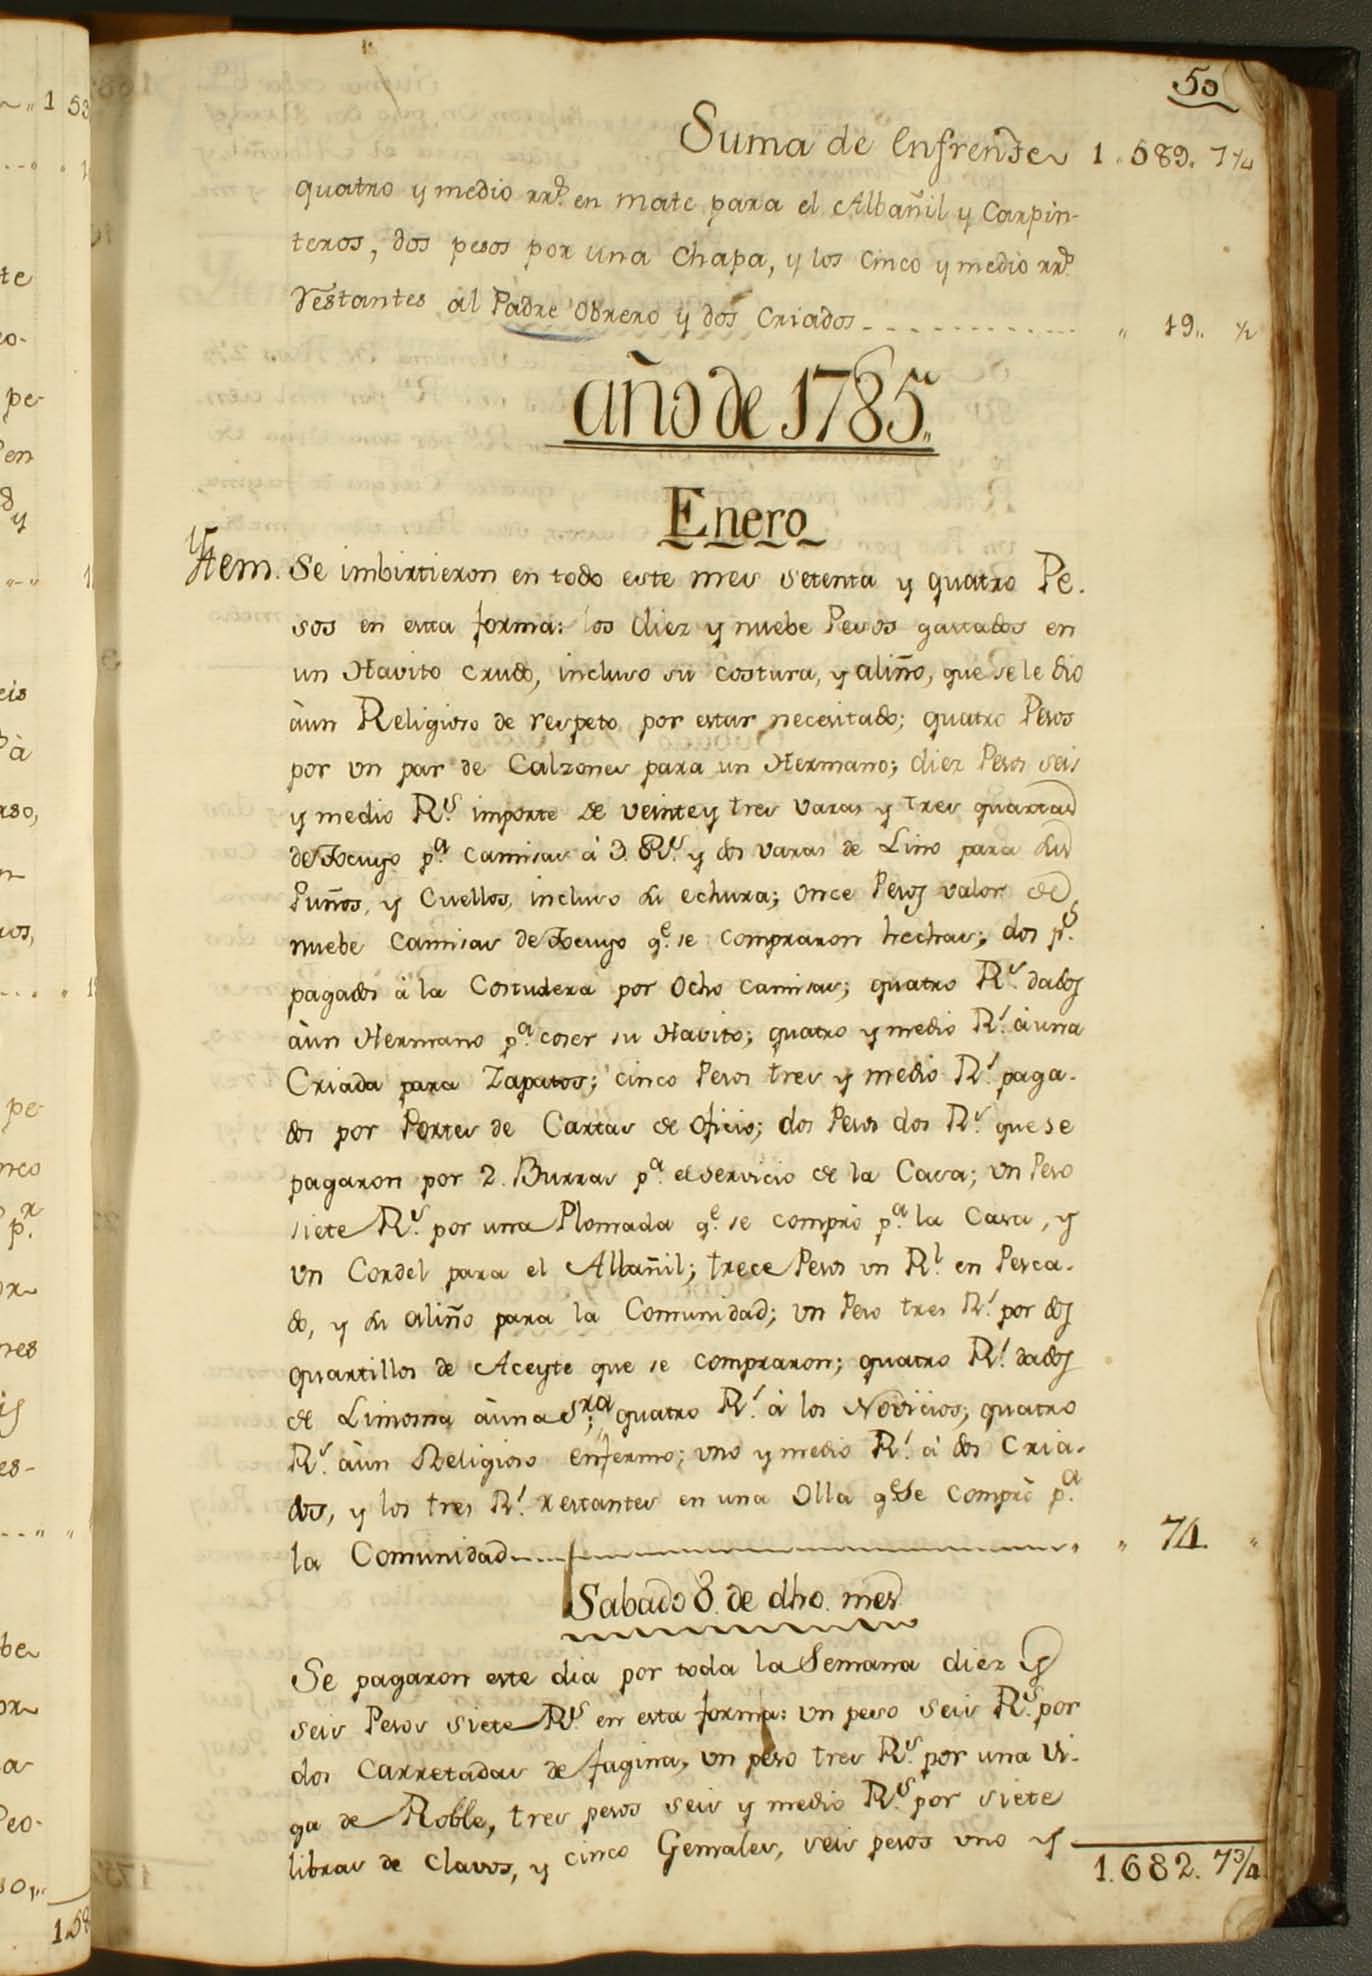 50
Suma de Enfrente 1.589. 7 1/4
quatro y medio rr.s en mate para el Albañil y Carpin-
teros, dos pesos por una Chapa, y los cinco y medio rr.s
restantes al Padre Obrero y dos Criados " 19.. 1/2
año de 1785.,
Enero
Ytem. Se imbirtieron en todo este mes setenta y quatro Pe.
sos en esta forma: los diez y nuebe Pesos gastados en
un Havito crudo, incluso su costura, y aliño, que se le dio
àun Religioso de respeto por estar necesitado; quatro Pesos
por un par de Calzones para un Hermano; diez Pesos seis
y medio R.s importe de veinte y tres varas y tres quartas
de Tocuyo p.a camisas á 3. R.s y dos varas de Lino para sus
Puños, y Cuellos, incluso su echura; once Pesos valor de
nuebe Camisas de Tocuyo q.e se compraron hechas; dos p.s
pagados à la Costudera por ocho camisas; quatro R.s dados
àun Hermano p.a coser su Havito; quatro y medio R.s àuna
Criada para Zapatos; cinco Pesos tres y medio R.s paga-
dos por Portes de Cartas de oficio; dos Pesos dos R.s que se
pagaron por 2. Burras p.a el servicio de la Casa; un Peso
siete R.s por una Plomada q.e se comprò p.a la Casa, y
un Cordel para el Albañil; trece Pesos un R.l en Pesca-
do, y su aliño para la Comunidad; un Peso tres R.s por dos
quartillos de Aceyte que se compraron; quatro R.s dados
de Limosna àuna S.ra; quatro R.s à los Novicios; quatro
R.s àun Religioso enfermo; uno y medio R.s à dos Cria-
dos, y los tres R.s restantes en una Olla q.e se comprò p.a
la Comunidad " 74. "
Sabado 8. de dho. mes
Se pagaron este dia por toda la Semana diez y
seis Pesos siete R.s en esta forma: un peso seis R.s por
dos Carretadas de fagina, un peso tres R.s por una Vi-
ga de Roble, tres pesos seis y medio R.s por siete
libras de clavos, y cinco Gemales, seis pesos uno y
1.682. 7 3/4